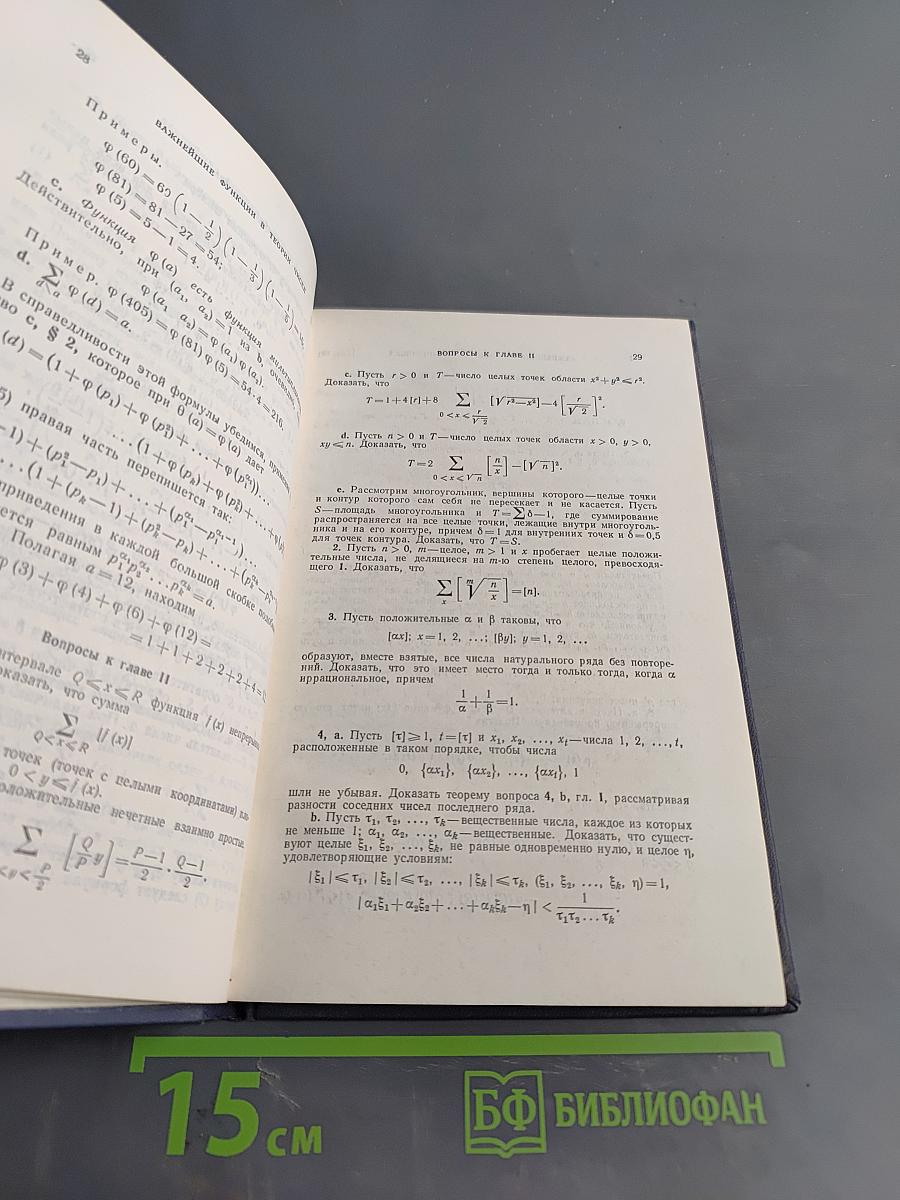 28
ВАЖНЕЙШИЕ ФУНКЦИИ В ТЕОРИИ ЧИСЕЛ
Примеры.
φ (60) = 60 (1 − 1/2) (1 − 1/3) (1 − 1/5) =
φ (81) = 81 − 27 = 54;
φ (5) = 5 − 1 = 4.
c. Функция φ (a) есть функция
Действительно, при (a₁, a₂) = 1 из b,
φ (a₁ a₂) = φ (a₁) φ (a₂).
Пример. φ (405) = φ (81) φ (5) = 54·4 = 216.
d. ∑ φ (d) = a.
В справедливости этой формулы убедимся,
c, § 2, которое при θ (a) = φ (a) дает
(d) = (1 + φ (p₁) + φ (p₁²) + ... + φ (p₁^α₁)) ...
... (1 + φ (pₖ) + φ (pₖ²) + ...
правая часть перепишется так:
−1) + (p₁² − p₁) + ... + (p₁^α₁ − p₁^α₁−1)) ...
... (1 + (pₖ − 1) + (pₖ² − pₖ) + ... +
приведения в каждой большой скобке
равным p₁^α₁ p₂^α₂ ... pₖ^αₖ = a.
Полагая a = 12, находим
φ (3) + φ (4) + φ (6) + φ (12) =
= 1 + 1 + 2 + 2 + 2 + 4 =
Вопросы к главе II
Q ⩽ x ⩽ R функция f (x)
что сумма
∑ [f (x)]
Q < x ⩽ R
точек (точек с целыми координатами)
0 < y ⩽ f (x).
нечетные взаимно простые.
∑ [Q/P y] = P−1/2 · Q−1/2.
ВОПРОСЫ К ГЛАВЕ II 29
c. Пусть r > 0 и T—число целых точек области x² + y² ⩽ r².
Доказать, что
T = 1 + 4 [r] + 8 ∑ [√r² − x²] − 4 [r/√2]².
0 < x ⩽ r/√2
d. Пусть n > 0 и T—число целых точек области x > 0, y > 0,
xy ⩽ n. Доказать, что
T = 2 ∑ [n/x] − [√n]².
0 < x ⩽ √n
e. Рассмотрим многоугольник, вершины которого—целые точки
и контур которого сам себя не пересекает и не касается. Пусть
S—площадь многоугольника и T = ∑ δ − 1, где суммирование
распространяется на все целые точки, лежащие внутри многоуголь-
ника и на его контуре, причем δ = 1 для внутренних точек и δ = 0,5
для точек контура. Доказать, что T = S.
2. Пусть n > 0, m—целое, m > 1 и x пробегает целые положи-
тельные числа, не делящиеся на m-ю степень целого, превосходя-
щего 1. Доказать, что
∑ₓ [ᵐ√n/x] = [n].
3. Пусть положительные α и β таковы, что
[αx]; x = 1, 2, ...; [βy]; y = 1, 2, ...
образуют, вместе взятые, все числа натурального ряда без повторе-
ний. Доказать, что это имеет место тогда и только тогда, когда α
иррациональное, причем
1/α + 1/β = 1.
4, a. Пусть [τ] ⩾ 1, t = [τ] и x₁, x₂, ..., xₜ—числа 1, 2, ..., t,
расположенные в таком порядке, чтобы числа
0, {αx₁}, {αx₂}, ..., {αxₜ}, 1
шли не убывая. Доказать теорему вопроса 4, b, гл. 1, рассматривая
разности соседних чисел последнего ряда.
b. Пусть τ₁, τ₂, ..., τₖ—вещественные числа, каждое из которых
не меньше 1; α₁, α₂, ..., αₖ—вещественные. Доказать, что сущест-
вуют целые ξ₁, ξ₂, ..., ξₖ, не равные одновременно нулю, и целое η,
удовлетворяющие условиям:
|ξ₁| ⩽ τ₁, |ξ₂| ⩽ τ₂, ..., |ξₖ| ⩽ τₖ, (ξ₁, ξ₂, ..., ξₖ, η) = 1,
|α₁ξ₁ + α₂ξ₂ + ... + αₖξₖ − η| < 1/τ₁τ₂...τₖ.
15 см
БФ БИБЛИОФАН